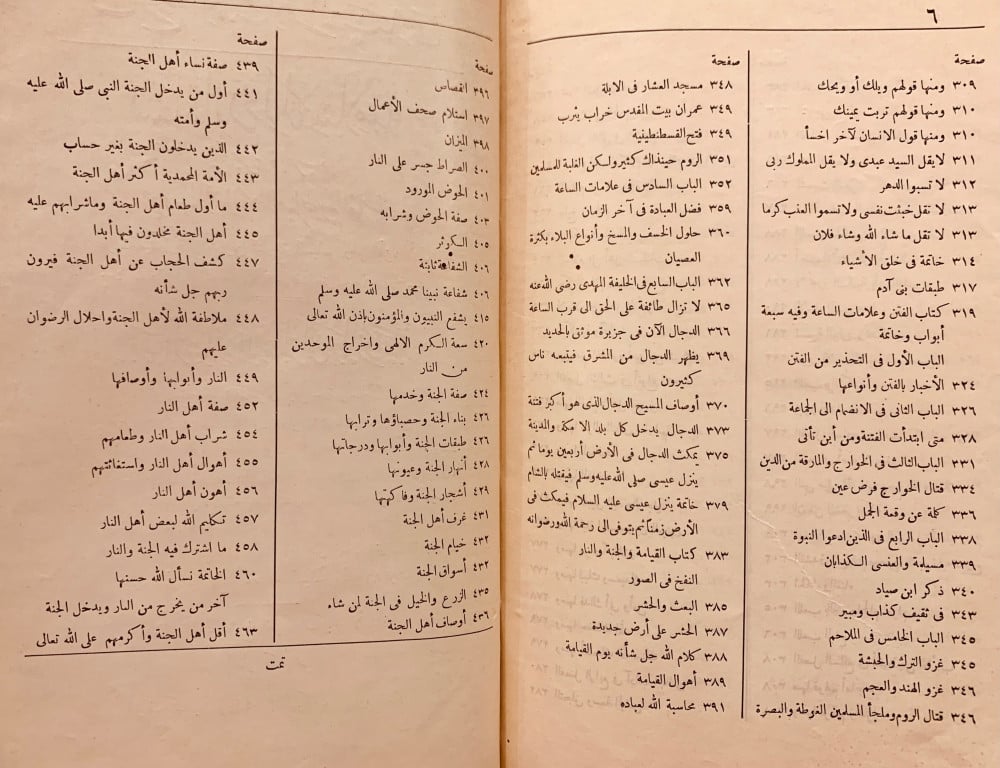 ٦
صفحة
٣٠٩ ومنها قولهم ويلك أو ويحك
٣١٠ ومنها قولهم تربت يمينك
٣١٠ ومنها قول الانسان لآخر اخسأ
٣١١ لايقل السيد عبدى ولا يقل المملوك ربى
٣١٢ لا تسبوا الدهر
٣١٣ لا تقل خبثت نفسى ولا تسموا العنب كرما
٣١٣ لا تقل ما شاء الله وشاء فلان
٣١٤ خاتمة فى خلق الأشياء
٣١٧ طبقات بنى آدم
٣١٩ كتاب الفتن وعلامات الساعة وفيه سبعة
أبواب وخاتمة
الباب الأول فى التحذير من الفتن
٣٢٤ الأخبار بالفتن وأنواعها
٣٢٦ الباب الثانى فى الانضمام الى الجماعة
٣٢٨ متى ابتدأت الفتنة ومن أين تأتى
٣٣١ الباب الثالث فى الخوارج والمارقة من الدين
٣٣٤ قتال الخوارج فرض عين
٣٣٦ كلمة عن وقعة الجمل
٣٣٨ الباب الرابع فى الذين ادعوا النبوة
٣٣٩ مسيلمة والعنسى الكذابان
٣٤٠ ذكر ابن صياد
٣٤٣ فى ثقيف كذاب ومبير
٣٤٥ الباب الخامس فى الملاحم
٣٤٥ غزو الترك والحبشة
٣٤٦ غزو الهند والعجم
٣٤٦ قتال الروم وملجأ المسلمين الغوطة والبصرة
صفحة
٣٤٨ مسجد العشار فى الابلة
٣٤٩ عمران بيت المقدس خراب يثرب
٣٤٩ فتح القسطنطينية
٣٥١ الروم حينذاك كثير ولكن الغلبة للمسلمين
٣٥٢ الباب السادس فى علامات الساعة
٣٥٩ فضل العبادة فى آخر الزمان
٣٦٠ حلول الخسف والمسخ وأنواع البلاء بكثرة
العصيان
٣٦٢ الباب السابع فى الخليفة المهدى رضى الله عنه
٣٦٥ لا تزال طائفة على الحق الى قرب الساعة
٣٦٦ الدجال الآن فى جزيرة موثق بالحديد
٣٦٩ يظهر الدجال من المشرق فيتبعه ناس
كثيرون
٣٧٠ أوصاف المسيح الدجال الذى هو أكبر فتنة
٣٧٣ الدجال يدخل كل بلد الا مكة والمدينة
٣٧٥ يمكث الدجال فى الأرض أربعين يوما ثم
ينزل عيسى صلى الله عليه وسلم فيقتله بالشام
٣٧٩ خاتمة ينزل عيسى عليه السلام فيمكث فى
الأرض زمنا ثم يتوفى الى رحمة الله ورضوانه
٣٨٣ كتاب القيامة والجنة والنار
النفخ فى الصور
٣٨٥ البعث والحشر
٣٨٧ الحشر على أرض جديدة
٣٨٨ كلام الله جل شأنه يوم القيامة
٣٨٩ أهوال القيامة
٣٩١ محاسبة الله لعباده
صفحة
٣٩٦ القصاص
٣٩٧ استلام صحف الأعمال
٣٩٨ الميزان
٤٠٠ الصراط جسر على النار
٤٠١ الحوض المورود
٤٠٣ صفة الحوض وشرابه
٤٠٥ الكوثر
٤٠٦ الشفاعة ثابتة
٤٠٦ شفاعة نبينا محمد صلى الله عليه وسلم
٤١٥ يشفع النبيون والمؤمنون باذن الله تعالى
٤٢٠ سعة الكرم الالهى واخراج الموحدين
من النار
٤٢٤ صفة الجنة وخدمها
٤٢٦ بناء الجنة وحصباؤها وترابها
٤٢٦ طبقات الجنة وأبوابها ودرجاتها
٤٢٨ أنهار الجنة وعيونها
٤٢٩ أشجار الجنة وفاكهتها
٤٣١ غرف أهل الجنة
٤٣٢ خيام الجنة
٤٣٢ أسواق الجنة
٤٣٥ الزرع والخيل فى الجنة لمن شاء
٤٣٦ أوصاف أهل الجنة
صفحة
٤٣٩ صفة نساء أهل الجنة
٤٤١ أول من يدخل الجنة النبى صلى الله عليه
وسلم وأمته
٤٤٢ الذين يدخلون الجنة بغير حساب
٤٤٣ الأمة المحمدية أكثر أهل الجنة
٤٤٤ ما أول طعام أهل الجنة وماشرابهم عليه
٤٤٥ أهل الجنة مخلدون فيها أبدا
٤٤٧ كشف الحجاب عن أهل الجنة فيرون
ربهم جل شأنه
٤٤٨ ملاطفة الله لأهل الجنة واحلال الرضوان
عليهم
٤٤٩ النار وأبوابها وأوصافها
٤٥٢ صفة أهل النار
٤٥٤ شراب أهل النار وطعامهم
٤٥٥ أهوال أهل النار واستغاثتهم
٤٥٦ أهون أهل النار
٤٥٧ تكليم الله لبعض أهل النار
٤٥٨ ما اشترك فيه الجنة والنار
٤٦٠ الخاتمة نسأل الله حسنها
آخر من يخرج من النار ويدخل الجنة
٤٦٣ أقل أهل الجنة وأكرمهم على الله تعالى
تمت